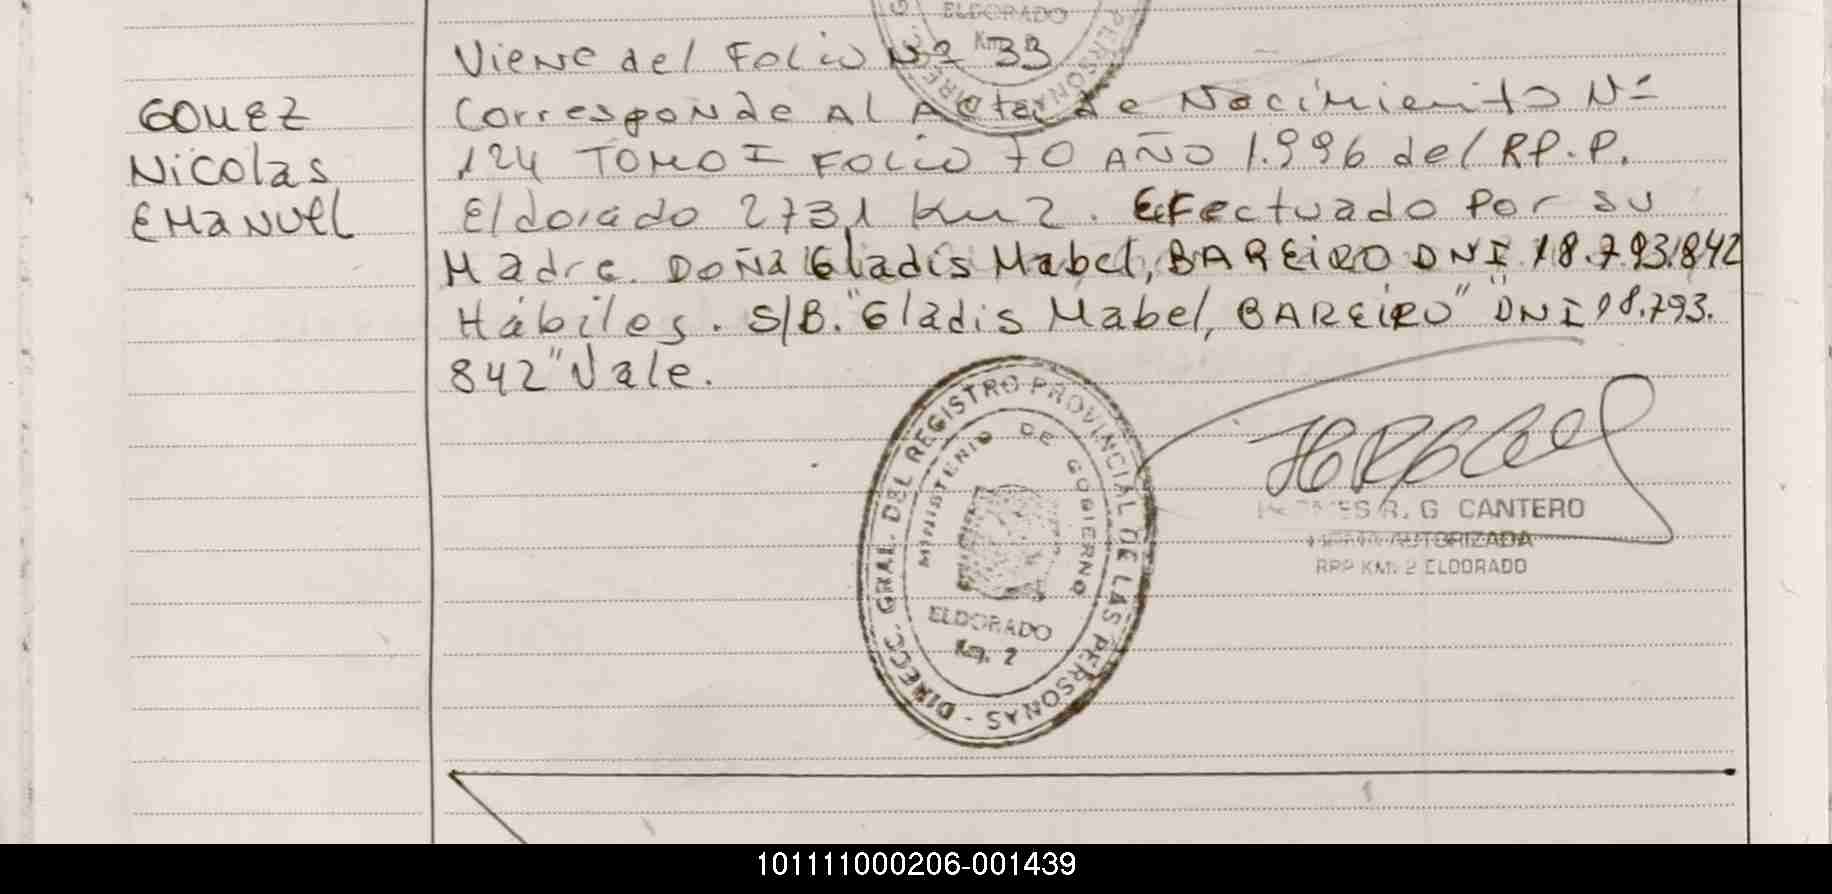 ELDORADO
Km
Viene del Folio Nº 33
GOMEZ
Nicolas
EMANUEL
Corresponde Al Acta de Nacimiento Nº
124 TOMO I FOLIO 70 AÑO 1.996 del RP.P.
Eldorado 2731 Km 2. Efectuado Por su
Madre. DOÑA Gladis Mabel, BAREIRO DNI 18.793.842
Hábiles. S/B. "Gladis Mabel, BAREIRO" "DNI 18.793.
842" Vale.
DIRECC. GRAL. DEL REGISTRO PROVINCIAL DE LAS PERSONAS -
MINISTERIO DE GOBIERNO
ELDORADO
Km. 2
R. G CANTERO
FIRMA AUTORIZADA
RPP KM. 2 ELDORADO
101111000206-001439